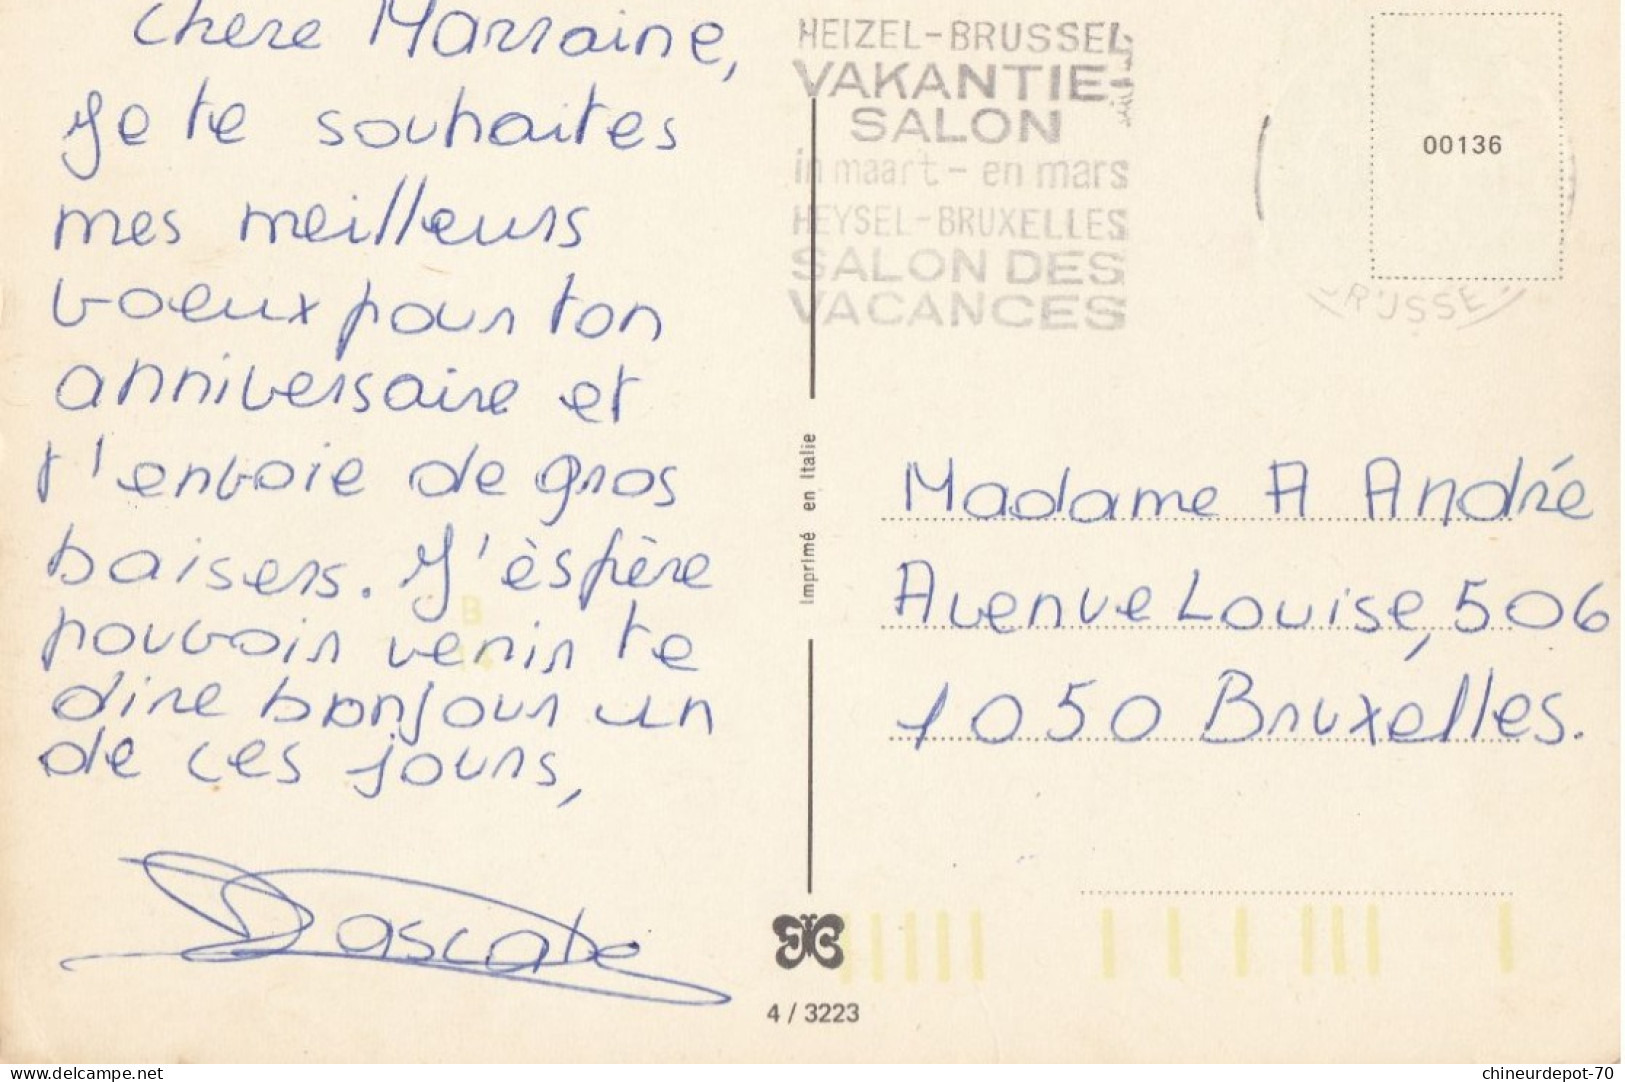 Chere Marraine,
Je te souhaites
mes meilleurs
voeux pour ton
anniversaire et
t'envoie de gros
baisers. J'èspère
pouvoir venir te
dire bonjour un
de ces jours,
Pascale
HEIZEL-BRUSSEL
VAKANTIE-
SALON
in maart - en mars
HEYSEL-BRUXELLES
SALON DES
VACANCES
00136
RUSSE
Imprimé en Italie
Madame A André
Avenue Louise, 506
1050 Bruxelles.
4 / 3223
delcampe.net
chineurdepot-70